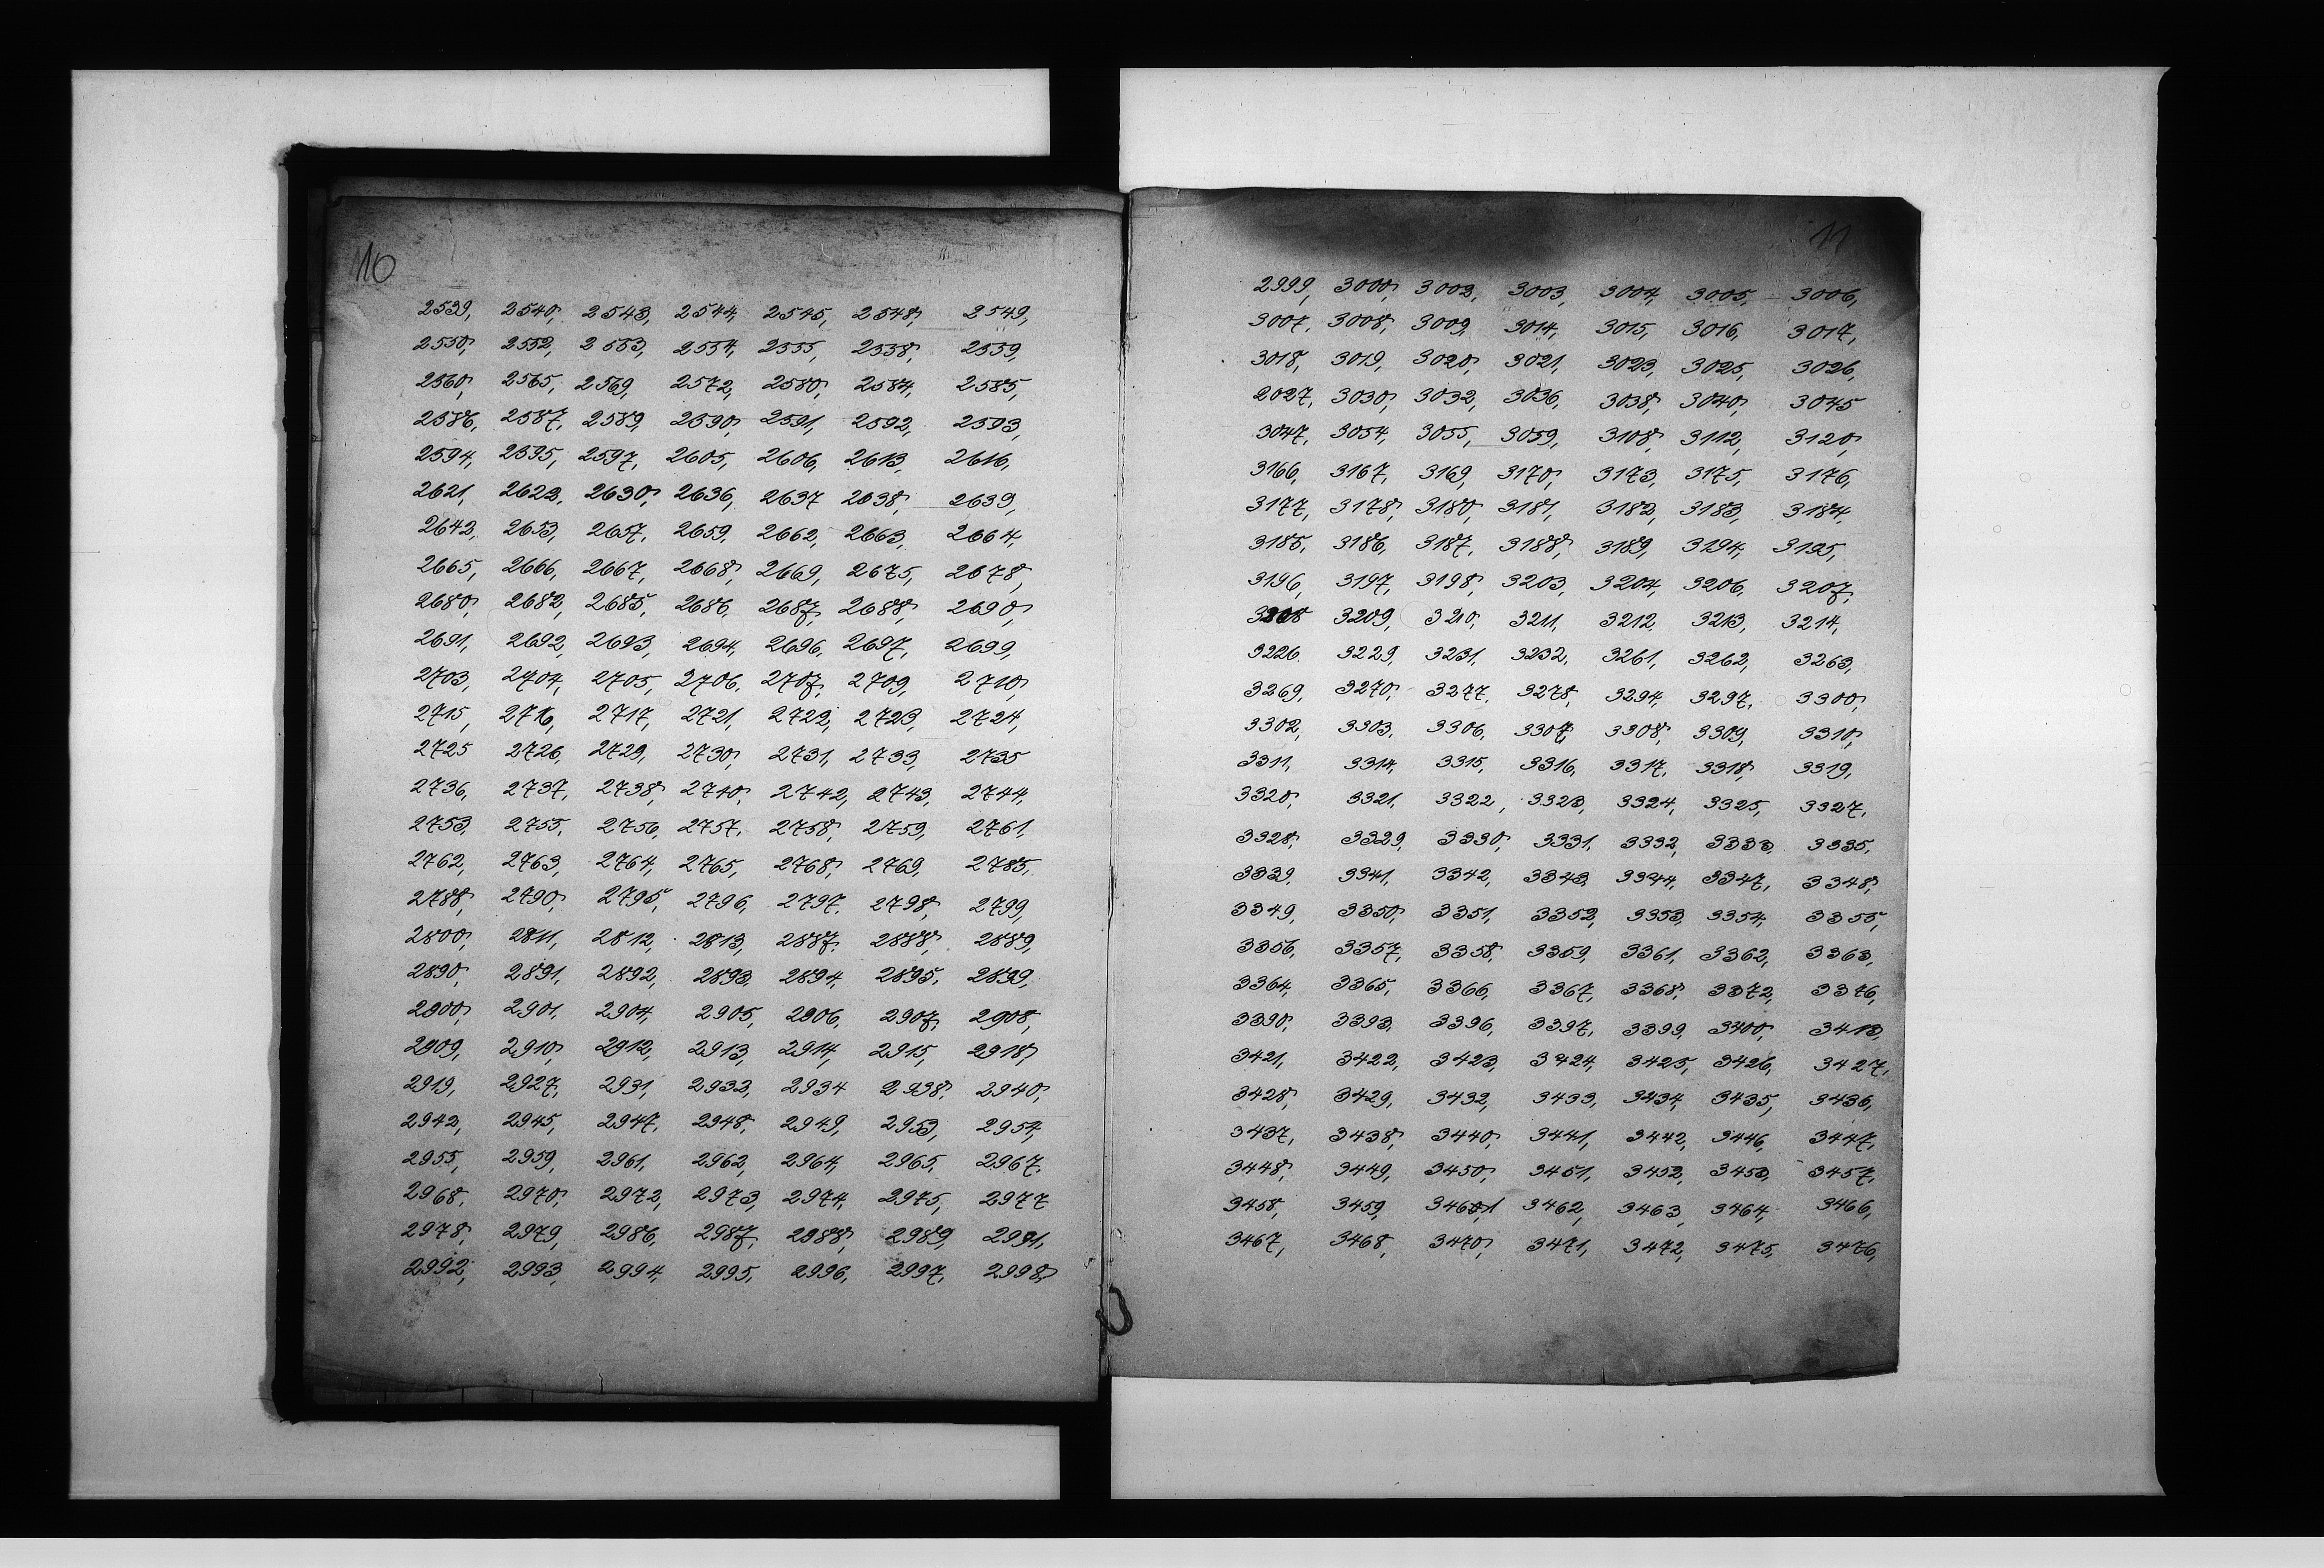 10
2539, 2540, 2543, 2544, 2545, 2548, 2549,
2550, 2552, 2553, 2554, 2555, 2558, 2559,
2560, 2565, 2569, 2572, 2580, 2584, 2585,
2586, 2587, 2589, 2590, 2591, 2592, 2593,
2594, 2595, 2597, 2605, 2606, 2613, 2616,
2621, 2623, 2630, 2636, 2637 2638, 2639,
2642, 2653, 2657, 2659, 2662, 2663, 2664,
2665, 2666, 2667, 2668, 2669, 2675, 2678,
2680, 2682, 2685, 2686, 2687, 2688, 2690,
2691, 2692, 2693, 2694, 2696, 2697, 2699,
2703, 2704, 2705, 2706, 2707, 2709, 2710,
2715, 2716, 2717, 2721, 2722, 2723, 2724,
2725 2726, 2729, 2730, 2731, 2733, 2735
2736, 2737, 2738, 2740, 2742, 2743, 2744,
2753, 2755, 2756, 2757, 2758, 2759, 2761,
2762, 2763, 2764, 2765, 2768, 2769, 2785,
2788, 2790, 2795, 2796, 2797, 2798, 2799,
2800, 2811, 2812, 2813, 2887, 2888, 2889,
2890, 2891, 2892, 2893, 2894, 2895, 2899,
2900, 2901, 2904, 2905, 2906, 2907, 2908,
2909, 2910, 2912, 2913, 2914, 2915, 2918,
2919, 2927, 2931, 2932, 2934 2938, 2940,
2942, 2945, 2947, 2948, 2949, 2953, 2954,
2955, 2959, 2961, 2962, 2964, 2965, 2967,
2968, 2970, 2972, 2973, 2974, 2975, 2977
2978, 2979, 2986, 2987, 2988, 2989, 2991,
2992, 2993, 2994, 2995, 2996, 2997, 2998,
11
2999, 3000, 3002, 3003, 3004, 3005, 3006,
3007, 3008, 3009, 3014, 3015, 3016, 3017,
3018, 3019, 3020, 3021, 3023, 3025, 3026,
2027, 3030, 3032, 3036, 3038, 3040, 3045
3047, 3054, 3055, 3059, 3108, 3112, 3120,
3166, 3167, 3169, 3170, 3173, 3175, 3176,
3177, 3178, 3180, 3181, 3182, 3183, 3184,
3185, 3186, 3187, 3188, 3189, 3194, 3195,
3196, 3197, 3198, 3203, 3204, 3206, 3207,
3208 3209, 3210, 3211, 3212, 3213, 3214,
3226, 3229, 3231, 3232, 3261, 3262, 3263,
3269, 3270, 3277, 3278, 3294, 3297, 3300,
3302, 3303, 3306, 3307, 3308, 3309, 3310,
3311, 3314, 3315, 3316, 3317, 3318, 3319,
3320, 3321, 3322, 3323, 3324, 3325, 3327,
3328, 3329, 3330, 3331, 3332, 3333, 3335,
3339, 3341, 3342, 3343, 3344, 3347, 3348,
3349, 3350, 3351, 3352, 3353, 3354, 3355,
3356, 3357, 3358, 3359, 3361, 3362, 3363,
3364, 3365, 3366, 3367, 3368, 3372, 3376,
3390, 3393, 3396, 3397, 3399, 3400, 3413,
3421, 3422, 3423, 3424, 3425, 3426, 3427,
3428, 3429, 3432, 3433, 3434, 3435, 3436,
3437, 3438, 3440, 3441, 3442, 3446, 3447,
3448, 3449, 3450, 3451, 3452, 3453, 3457,
3458, 3459, 3462, 3463, 3464, 3466,
3467, 3468, 3470, 3471, 3472, 3475, 3476,